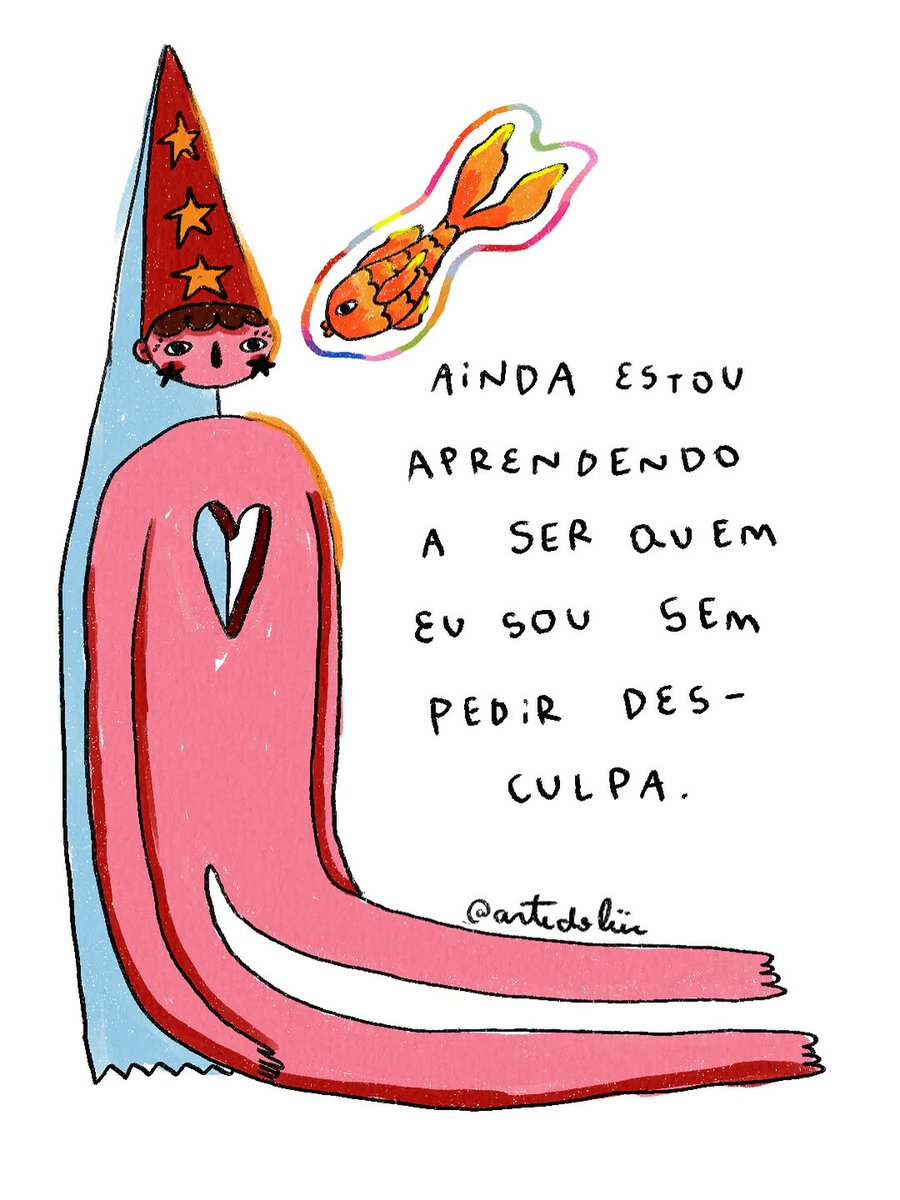 AINDA ESTOU
APRENDENDO
A SER QUEM
EU SOU SEM
PEDIR DES-
CULPA.
@artedolüc